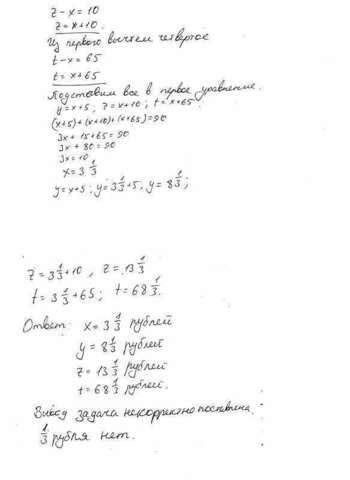 z - x = 10
z = x + 10.
Из первого вычтем четвертое
t - x = 65
t = x + 65
Подставим все в первое уравнение.
y = x + 5 ; z = x + 10 ; t = x + 65.
(x+5) + (x+10) + (x+65) = 90
3x + 15 + 65 = 90
3x + 80 = 90
3x = 10
x = 3 1/3
y = x + 5 ; y = 3 1/3 + 5, y = 8 1/3 ;
z = 3 1/3 + 10 , z = 13 1/3
t = 3 1/3 + 65 ; t = 68 1/3.
Ответ: x = 3 1/3 рублей
y = 8 1/3 рублей
z = 13 1/3 рублей
t = 68 1/3 рублей.
Вывод задача некорректно поставлена.
1/3 рубля нет.